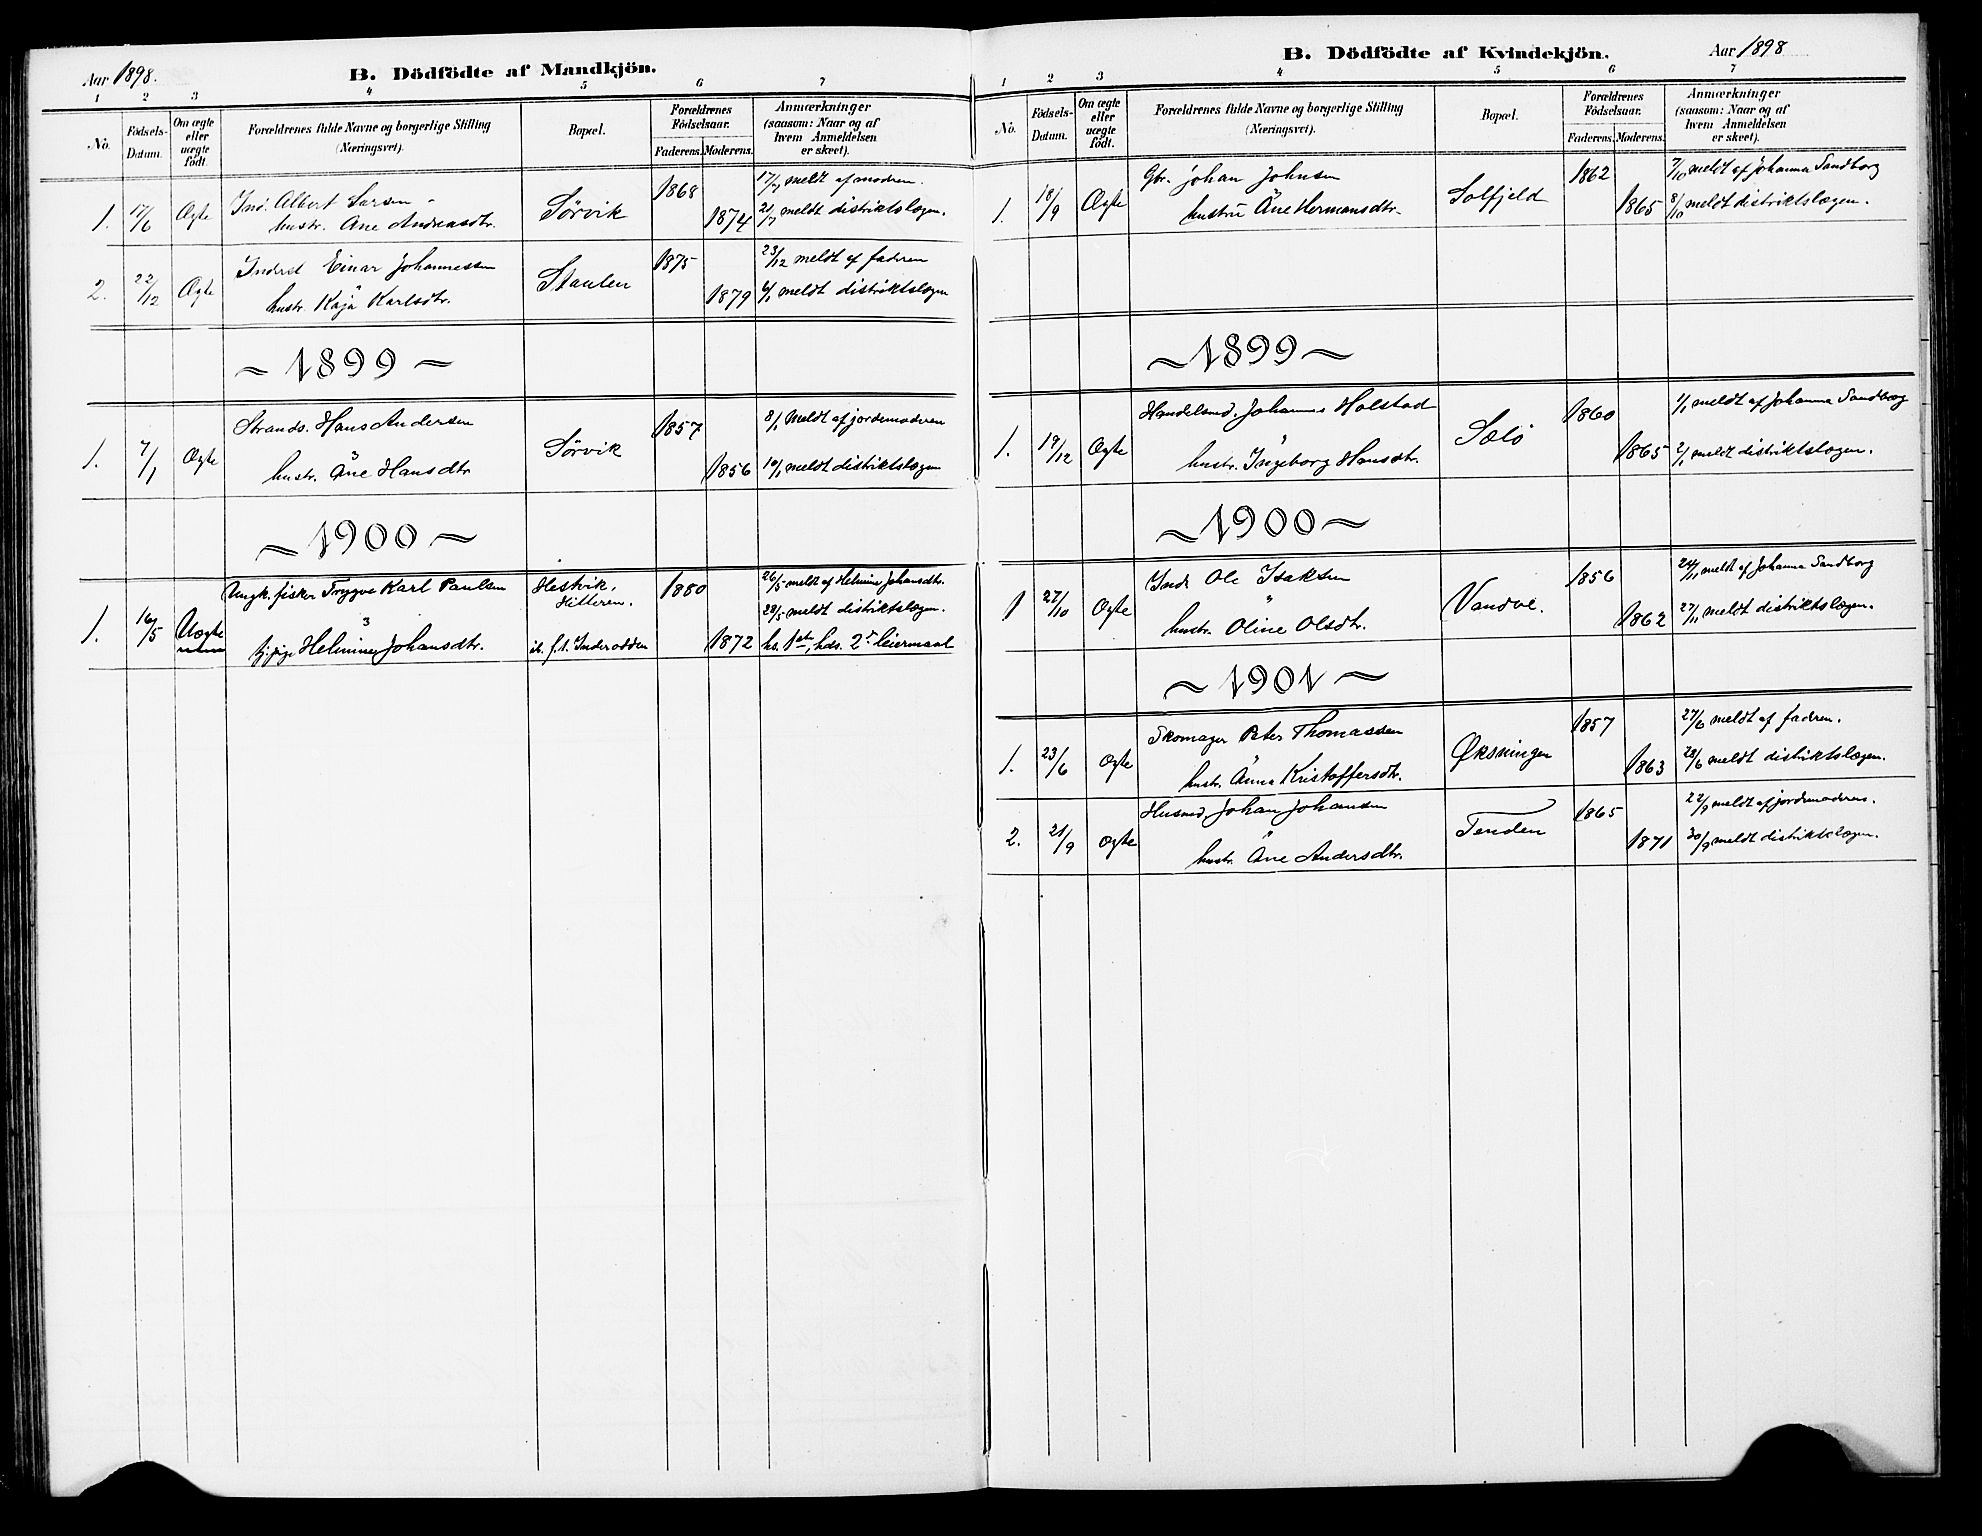 Aar 1898.
B. Dödfödte af Mandkjön.
1 2 3 4 5 6 7
No.
Födsels-
Datum.
Om ægte
eller
uægte
födt.
Forældrenes fulde Navne og borgerlige Stilling
(Næringsvei).
Bopæl.
Forældrenes
Födselsaar.
Faderens. Moderens.
Anmærkninger
(saasom: Naar og af
hvem Anmeldelsen
er skeet).
1. 17/6 Ægte
Ind. Albert Larsen
hustr. Ane Andreasdtr.
Sørvik
1868
1874
17/7 meldt af moderen.
21/7 meldt distriktslægen.
2. 22/12 Ægte
Inderst Einar Johannessen
hustr. Kaja Karlsdtr.
Staulen
1875
1879
23/12 meldt af faderen
4/1 meldt distriktslægen
~ 1899 ~
1. 7/1 Ægte
Strands. Hans Andersen
hustr. Ane Hansdtr
Sørvik
1857
1856
8/1 Meldt af jordemoderen
10/1 meldt distriktslægen
~ 1900 ~
1. 16/5 Uægte
Ungk. fisker Trygve Karl Paulsen
3
Helmine Johansdtr.
Hestvik,
Hitteren.
Inderodden
1880
1872
26/5 meldt af Helmine Johansdtr.
28/5 meldt distriktslægen.
hs. 1ste, hds. 2t leiermaal
Aar 1898
B. Dödfödte af Kvindekjön.
1 2 3 4 5 6 7
No.
Födsels-
Datum.
Om ægte
eller
uægte
födt.
Forældrenes fulde Navne og borgerlige Stilling
(Næringsvei).
Bopæl.
Forældrenes
Födselsaar.
Faderens. Moderens.
Anmærkninger
(saasom: Naar og af
hvem Anmeldelsen
er skeet).
1. 18/9 Ægte
Gbr. Johan Johnsen
hustru Ane Hermansdtr.
Solfjeld
1862
1865
7/10 meldt af Johanna Sandborg
8/10 meldt distriktslægen.
~ 1899 ~
1. 19/12 Ægte
Handelsmd. Johannes Holstad
hustr. Ingeborg Hansdtr.
Sælø
1860
1865
1/1 meldt af Johanna Sandborg
2/1 meldt distriktslægen.
~ 1900 ~
1 27/10 Ægte
Inds Ole Isaksen
hustr. Oline Olsdtr.
Vandve.
1856
1862
24/11 meldt af Johanna Sandborg
27/11 meldt distriktslægen.
~ 1901 ~
1. 23/6 Ægte
Skomager Peter Thomassen
hustr. Anna Kristoffersdtr.
Øksningen
1857
1863
27/6 meldt af faderen.
28/6 meldt distriktslægen.
2. 21/9 Ægte
Husmd. Johan Johansen
hustr. Ane Andersdtr.
Tenden
1865
1871
22/9 meldt af jordemoderen.
30/9 meldt distriktslægen.